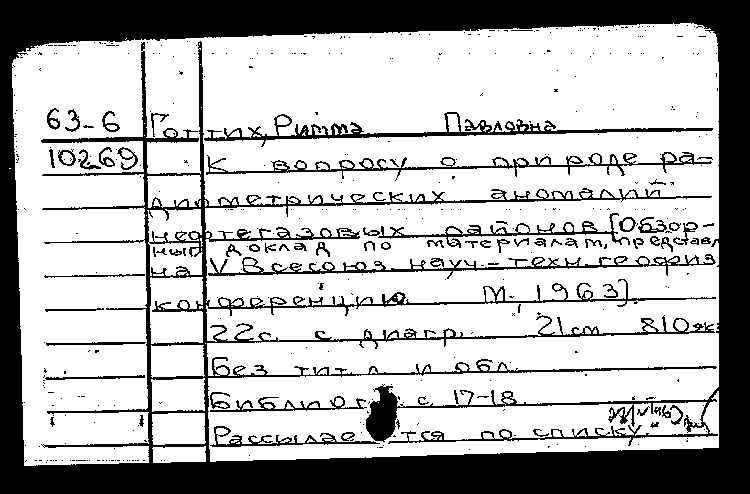 63-6 Готтих, Римма Павловна
10269 К вопросу о природе ра=
диометрических аномалий
нефтегазовых районов [Обзор-
ный доклад по материалам, представл
на V Всесоюз. науч.-техн. геофиз.
конференцию. М., 1963].
22с. с диагр. 21см 810экз
Без тит. л. и обл.
Библиог с. 17-18.
Рассылается по списку